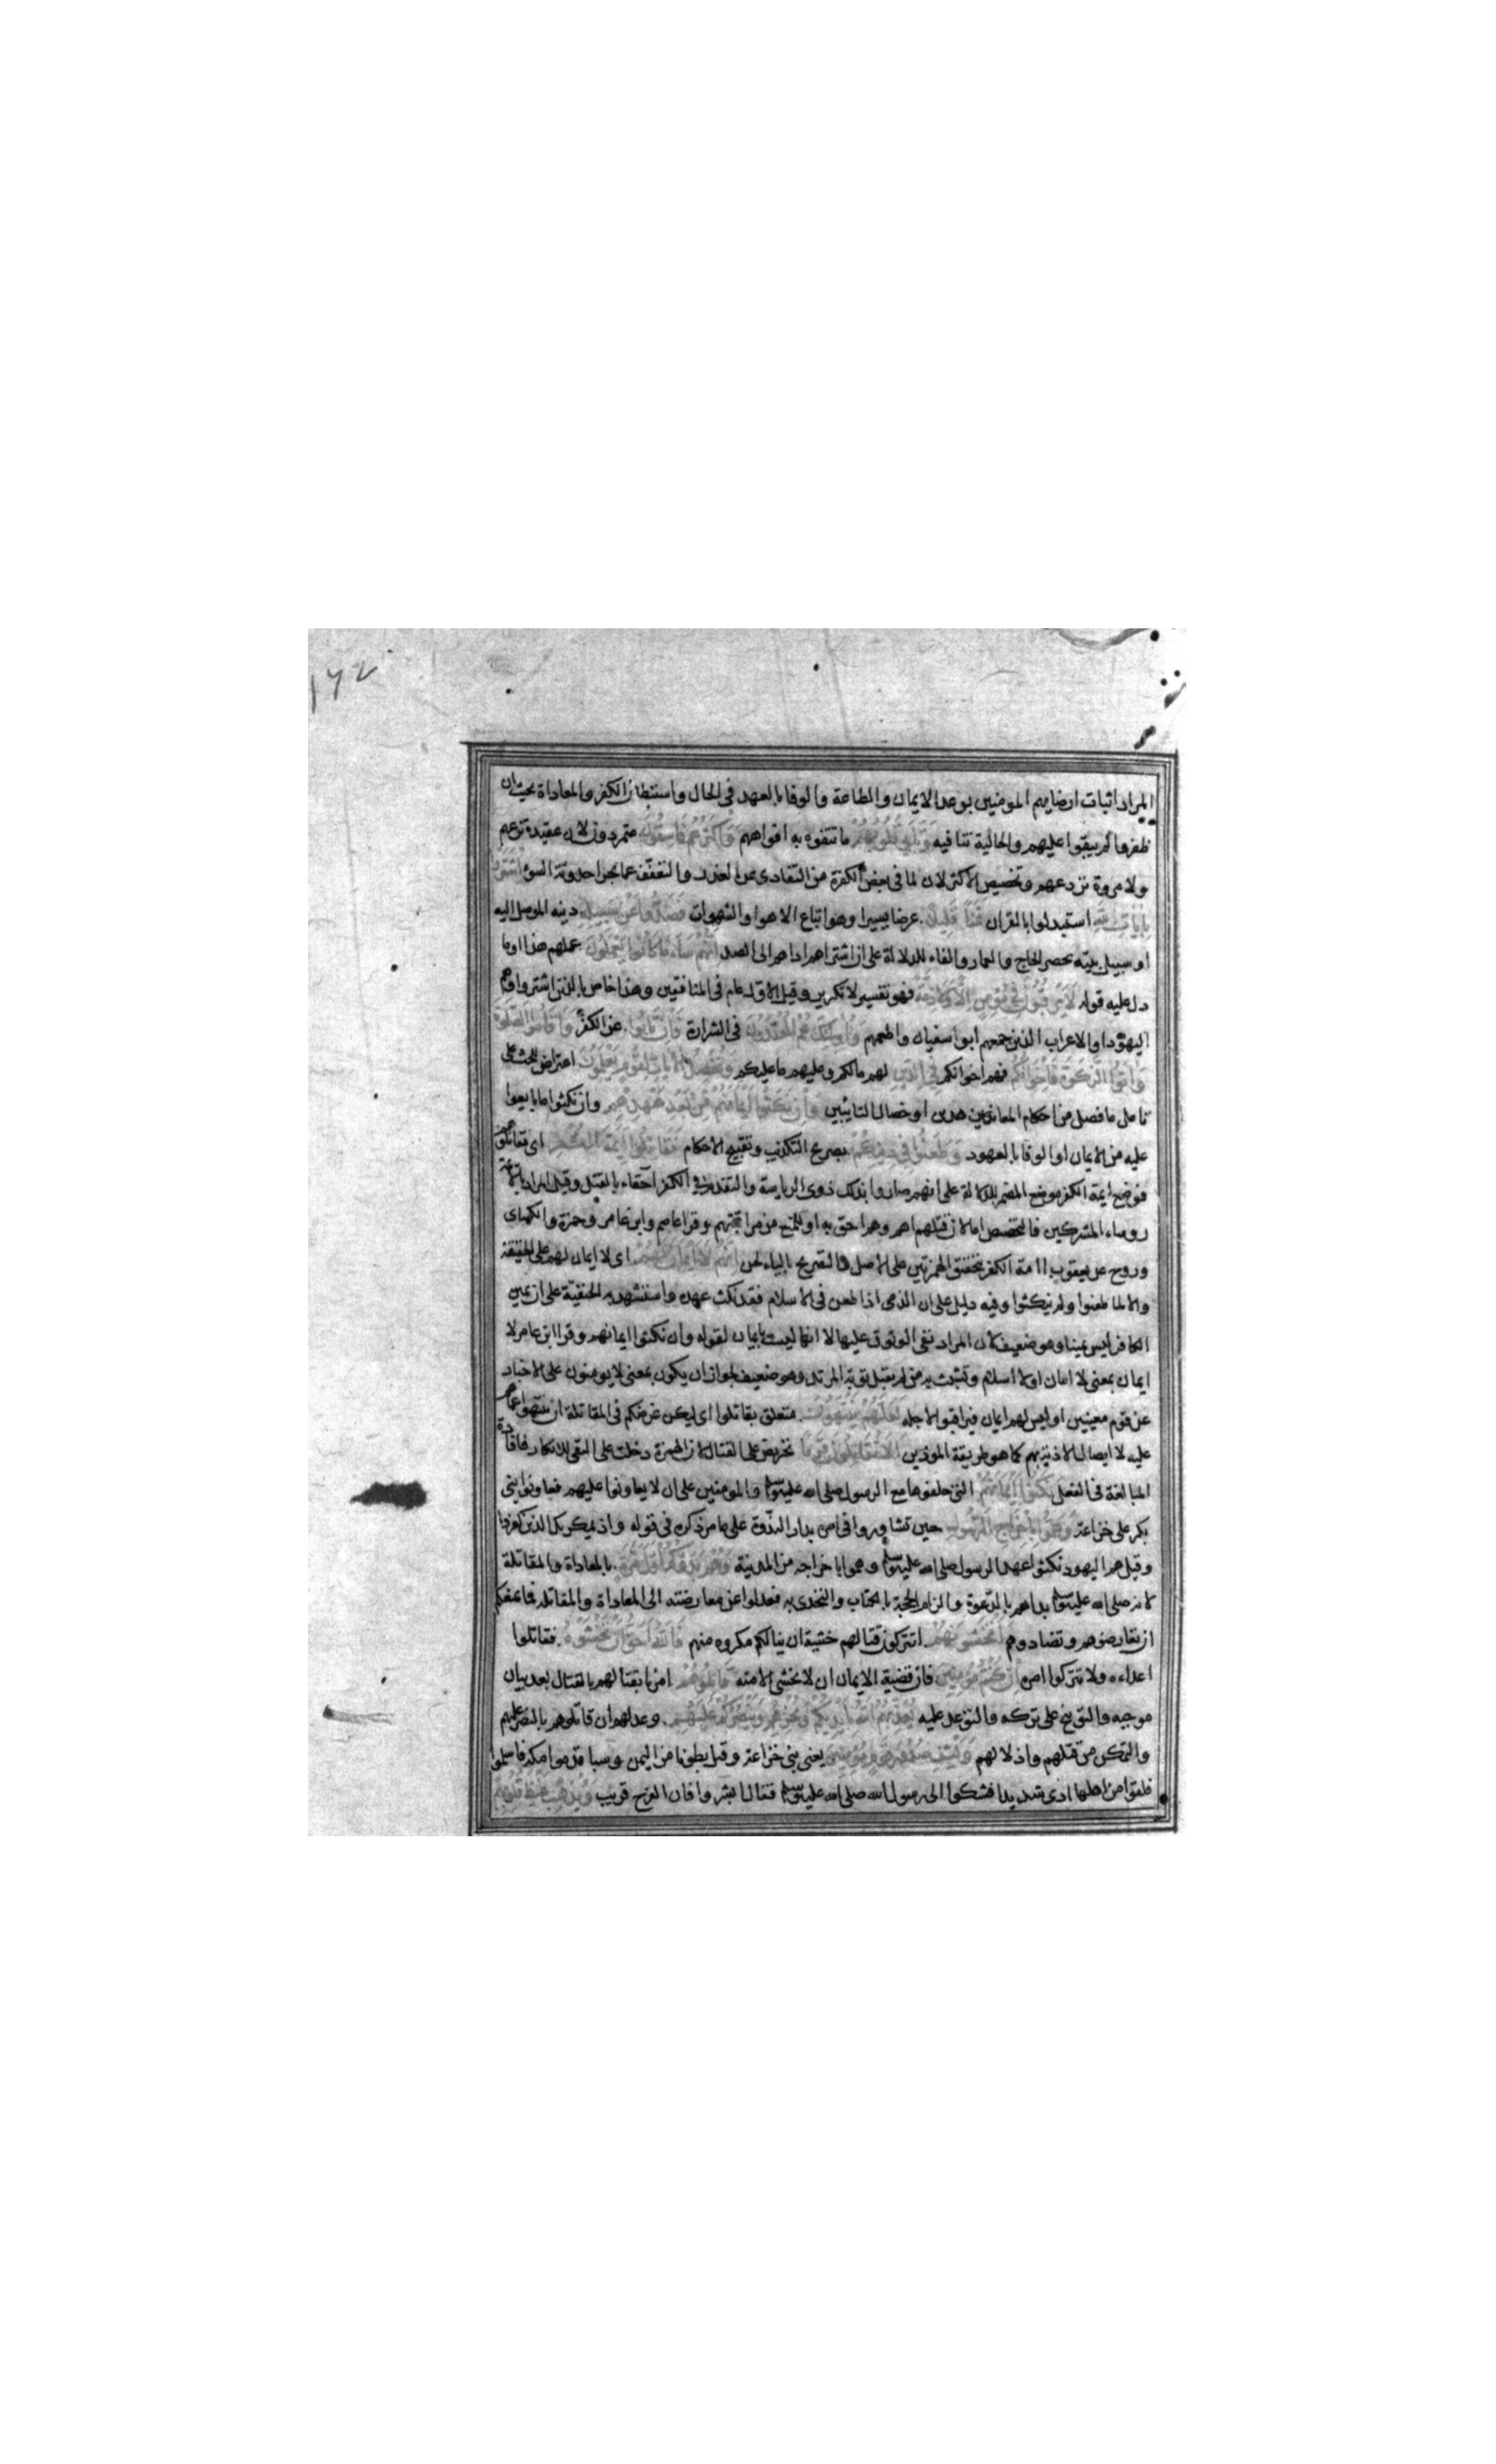 ١٦٢
المراد اثبات ارضايهم المومنين بوعد الايمان والطاعة والوفا بالعهد في الحال واستبطان الكفر والمعاداة بحيث ان
ظفروا لم يبقوا عليهم والحالية تنافيه وتابى قلوبهم ما تتفوه به افواههم واكثرهم فاسقون متمردون لان عقيدة تزعهم
ولا مروة تردعهم وتخصيص الاكثر لان لما في بعض الكفرة من التفادى عن العذر والتعفف عما يجر احدوثة السوء اشتروا
بايات الله استبدلوا بالقران ثمنا قليلا عرضا يسيرا وهو اتباع الاهوا والشهوات فصدوا عن سبيله دينه الموصل اليه
او سبيل بيته بحصر الحاج والعمار والفاء للدلالة على ان اشتراهم اداهم الى الصد انهم ساء ما كانوا يعملون عملهم هذا او ما
دل عليه قوله لا يرقبون في مومن الا ولا ذمة فهو تفسير لا تكرير وقيل الاول عام في المنافقين وهذا خاص بالذين اشتروا وهم
اليهود او الاعراب الذين جمعهم ابو سفيان واطعمهم واولئك هم المعتدون في الشرارة فان تابوا عن الكفر واقاموا الصلوة
واتوا الزكوة فاخوانكم فهم اخوانكم في الدين لهم ما لكم وعليهم ما عليكم ونفصل الايات لقوم يعلمون اعتراض للحث على
تامل ما فصل من احكام المعاهدين او خصال التايبين وان نكثوا ايمانهم من بعد عهدهم وان نكثوا ما بايعوا
عليه من الايمان او الوفا بالعهود وطعنوا في دينكم بصريح التكذيب وتقبيح الاحكام فقاتلوا ايمة الكفر اى فقاتلوهم
فوضع ايمة الكفر موضع المضمر للدلالة على انهم صاروا بذلك ذوى الرياسة والتقدم في الكفر احقاء بالقتل وقيل المراد بالايمة
روساء المشركين فالتخصيص اما لان قتلهم اهم وهم احق به او للمنع من مراقبتهم وقرا عاصم وابن عامر وحمزة والكساى
وروح عن يعقوب اامة الكفر بتحقيق الهمزتين على الاصل والتصريح بالياء لحن انهم لا ايمان لهم اى لا ايمان لهم على الحقيقة
والا لما طعنوا ولم ينكثوا وفيه دليل على ان الذمى اذا طعن في الاسلام فقد نكث عهده واستشهد به الحنفية على ان يمين
الكافر ليس يمينا وهو ضعيف لان المراد نفى الوثوق عليها لا انها ليست بايمان لقوله وان نكثوا ايمانهم وقرا ابن عامر لا
ايمان بمعنى لا امان او لا اسلام وتشبث به من لم يقبل توبة المرتد وهو ضعيف لجواز ان يكون بمعنى لا يومنون على الاخبار
عن قوم معينين او ليس لهم ايمان فيراقبوا لاجله لعلهم ينتهون متعلق بقاتلوا اى ليكن غرضكم في المقاتلة ان ينتهوا عما هم
عليه لا ايصال الاذية بهم كما هو طريقة الموذين الا تقاتلون قوما تحريض على القتال لان الهمزة دخلت على النفى للانكار فافادة
المبالغة في الفعل نكثوا ايمانهم التى حلفوها مع الرسول صلى الله عليه وسلم والمومنين على ان لا يعاونوا عليهم فعاونوا بنى
بكر على خزاعة وهموا باخراج الرسول حين تشاوروا في امره بدار الندوة على ما مر ذكره في قوله واذ يمكر بك الذين كفروا
وقيل هم اليهود نكثوا عهد الرسول صلى الله عليه وسلم وهموا باخراجه من المدينة وهم بدءوكم اول مرة بالمعاداة والمقاتلة
لانه صلى الله عليه وسلم بداهم بالدعوة والزام الحجة بالكتاب والتحدى به فعدلوا عن معارضته الى المعاداة والمقاتلة فما يمنعكم
ان تعارضوهم وتصادموهم اتخشونهم اتتركون قتالهم خشية ان ينالكم مكروه منهم فالله احق ان تخشوه فقاتلوا
اعداءه ولا تتركوا امره ان كنتم مومنين فان قضية الايمان ان لا يخشى الا منه قاتلوهم امر بقتالهم بالقتال بعد بيان
موجبه والتوبيخ على تركه والتوعد عليه يعذبهم الله بايديكم ويخزهم وينصركم عليهم وعد لهم ان قاتلوهم بالنصر عليهم
والتمكن من قتلهم واذلالهم ويشف صدور قوم مومنين يعنى بنى خزاعة وقيل بطونا من اليمن وسبا قدموا مكة فاسلموا
فلقوا من اهلها اذى شديدا فشكوا الى رسول الله صلى الله عليه وسلم فقال ابشروا فان الفرج قريب ويذهب غيظ قلوبهم